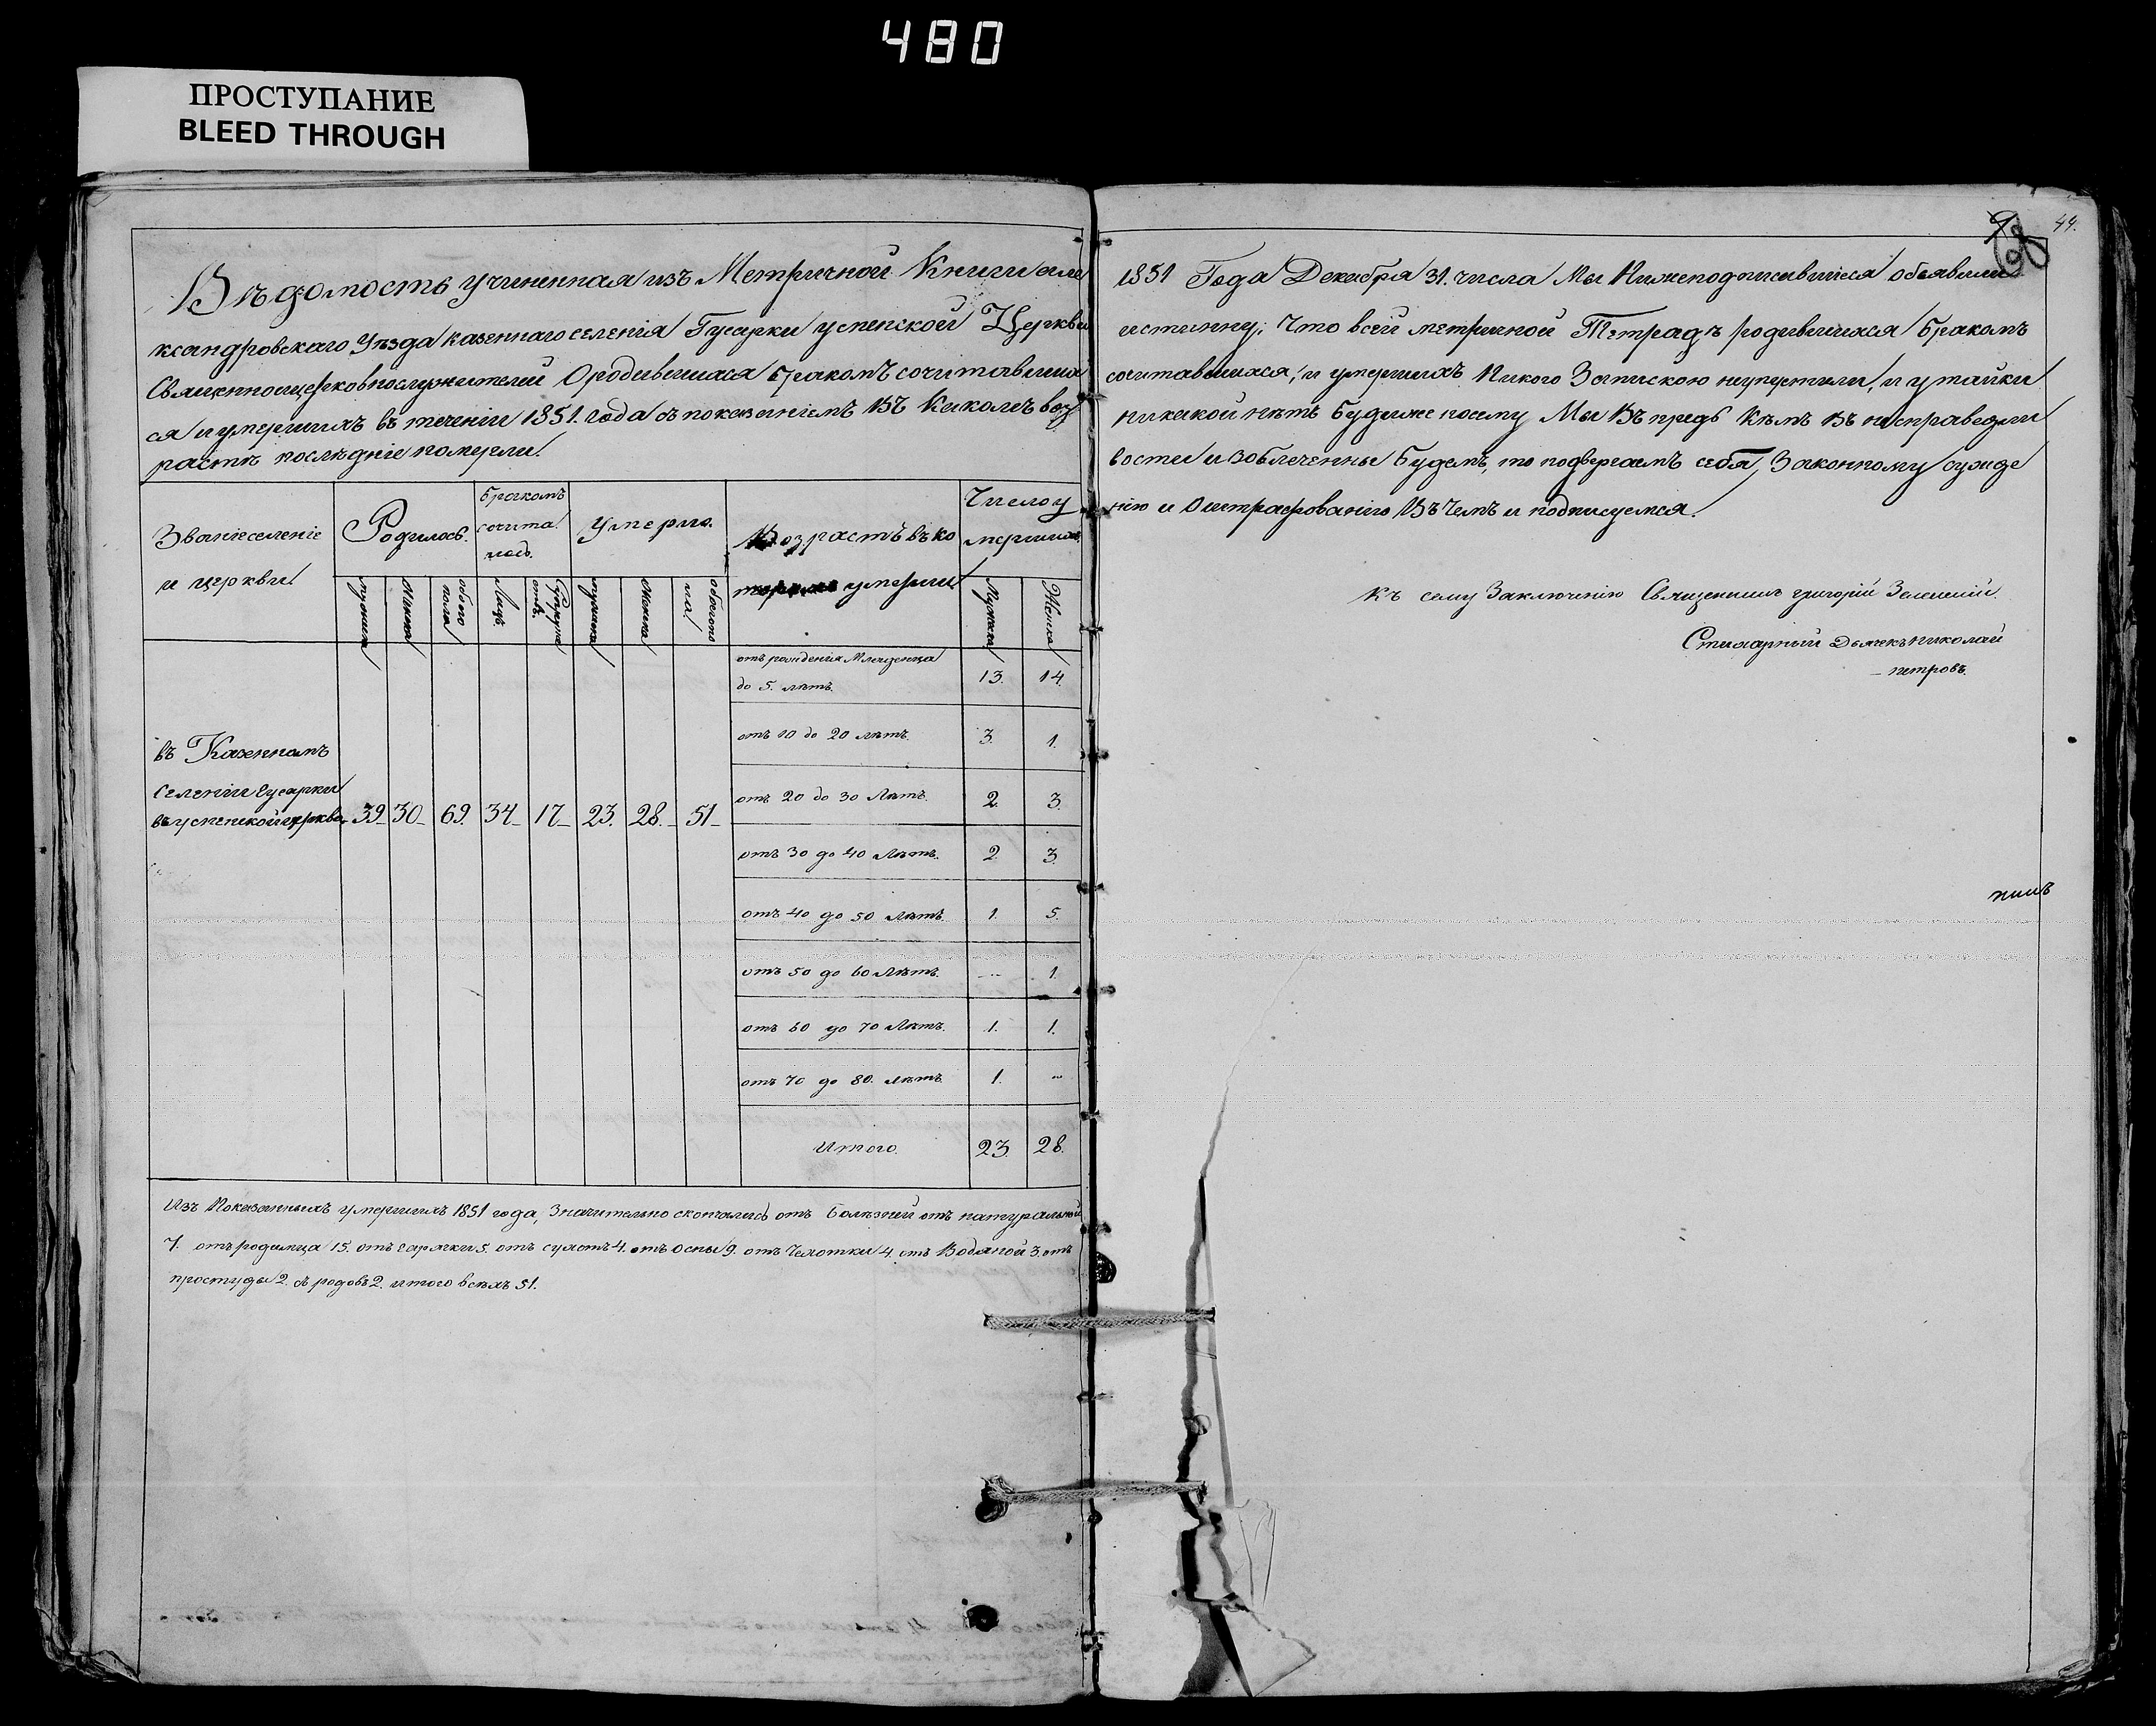 480
ПРОСТУПАНИЕ
BLEED THROUGH
Вѣдомость учиненная изъ Метричной Книги але
ксандровскаго Уѣзда казеннаго селенія Гусарки успенской Церкви
Священноицерковнослужителей О родившихся бракомъ сочитавшихъ
ся и умершихъ въ теченіи 1851. года съ показаніемъ Въ Какомъ воз
растѣ послѣдніе померли.
Званіе селеніе
и церкви
Родилось.
бракомъ
сочита
лось.
Умерло.
Возрастъ въ ко
умерли
Число у
мершихъ
мужеска
Женска
обоего
пола
Лицъ
Супруже
ствъ.
мужеска
Женска
обоего по
ла.
Мужеска
Женска
въ Казенномъ
селеніи Гусарки
въ успенской церкви
39 30 69. 34 17 23. 28. 51
отъ рожденія Младенца
до 5. лѣтъ. 13. 14.
отъ 10 до 20 лѣтъ. 3. 1.
отъ 20 до 30 Лѣтъ. 2. 3.
отъ 30 до 40 Лѣтъ. 2. 3.
отъ 40 до 50 Лѣтъ. 1. 5.
отъ 50 до 60 Лѣтъ. ... 1.
отъ 60 до 70 Лѣтъ. 1. 1.
отъ 70 до 80. лѣтъ. 1. ...
Итого. 23. 28.
Изъ Показанныхъ умершихъ 1851 года, Значительно скончались отъ Болѣзней отъ натуральной
7. отъ родимца 15. отъ гарячки 5. отъ 4. отъ Оспы 9. отъ Чахотки 4. отъ Водяной 3. отъ
простуды 2. родовъ 2. итого всѣхъ 51.
44.
68
1851 Года Декабря 31. числа Мы Нижеподписавшіеся объявили
истинну; Что всей метричной Тетрадѣ родившихся бракомъ
сочитавшихся, и умершихъ Никого Запискою неупустили, и утайки
никакой нѣтъ буде же посему Мы Въ предь Кѣмъ въ несправедли
вости изобличенны будемъ, то подвергаемъ себя, Законному сужде
нію и Оштрафованію Въ Чемъ и подписуемся.
Къ сему Заключенію Священникъ григорій Зеленскій.
Стихарный Дьячекъ николай
петровъ.